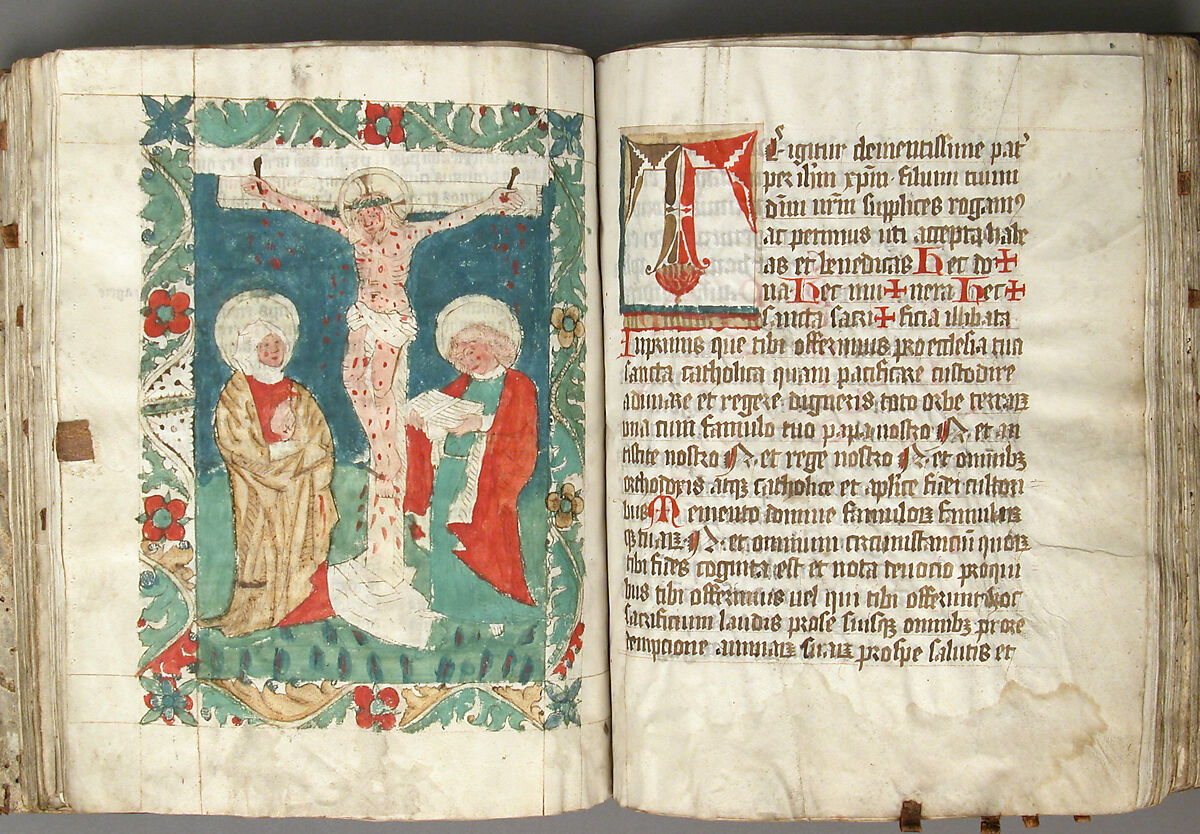 Te igitur clementissime pat᷑
per ih̄m xp̄m · filium tuum
dn̄m nr̄m supplices rogamꝰ
ac petimus uti accepta habe
as et benedicas Hec do✠
na Hec mu✠nera Hec✠
sancta sacri✠ficia illibata
Inprimis que tibi offerimus pro ecclesia tua
sancta catholica quam pacificare custodire
adunare et regere digneris toto orbe terraꝝ
vna cum famulo tuo papa nostro N. et an
tistite nostro N. et rege nostro N. et omnibꝫ
orthodoxis atqꝫ catholice et aplice fidei cultori
bus Memento domine famuloꝝ famulaꝝ
qꝫ tuaꝝ N. et omnium circumstanciū quoꝝ
tibi fides cognita est et nota deuocio pro qui
bus tibi offerimus uel qui tibi offerunt hoc
sacrificium laudis pro se suisqꝫ omnibꝫ pro re
dempcione animaꝝ suaꝝ pro spe salutis et